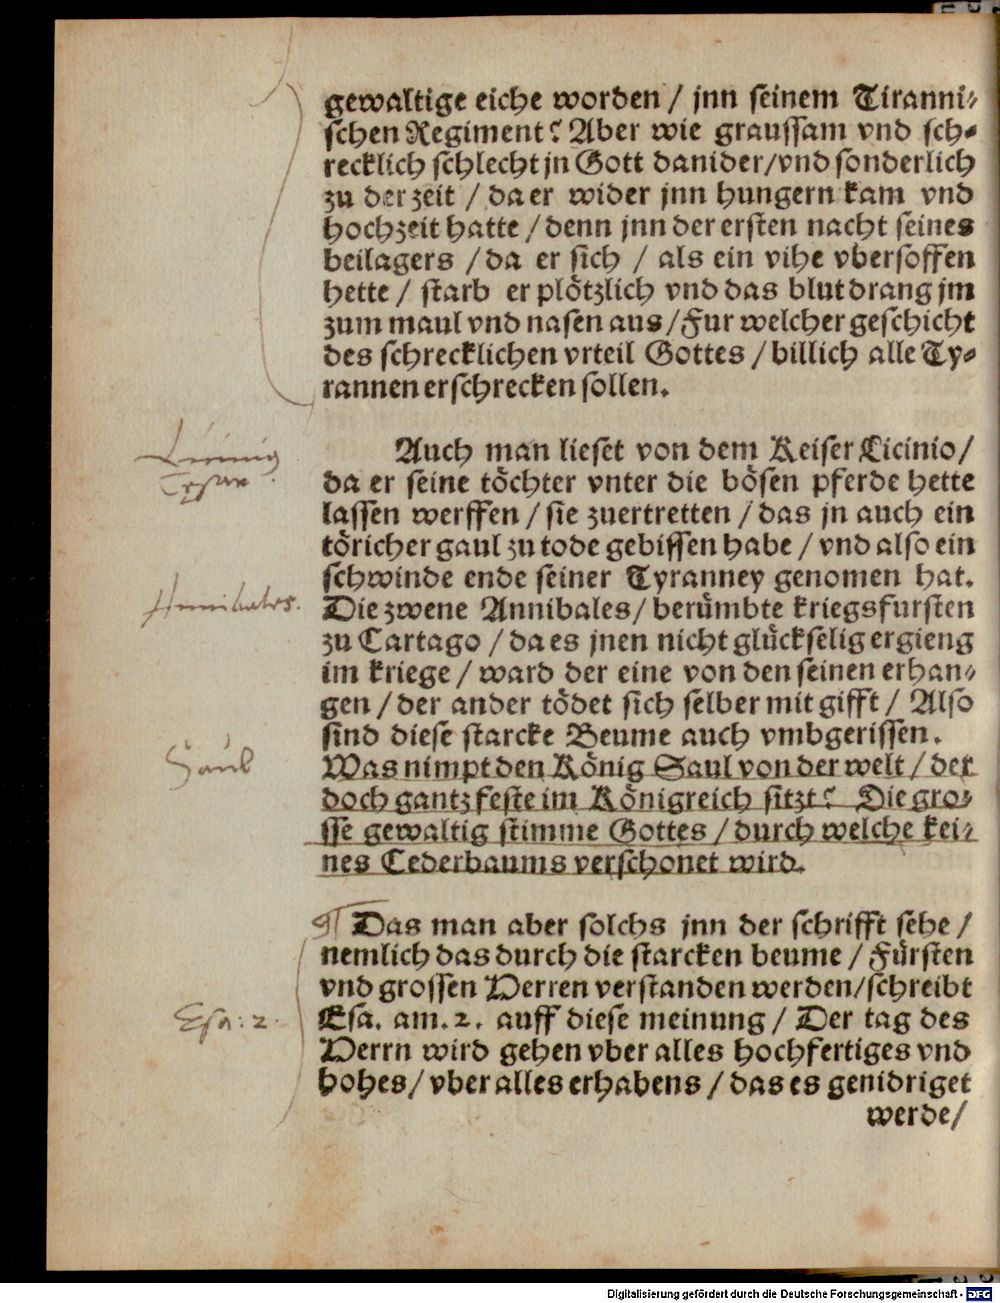 gewaltige eiche worden / jnn seinem Tiranni⸗
schen Regiment? Aber wie graussam vnd sch⸗
recklich schlecht jn Gott danider/vnd sonderlich
zu der zeit / da er wider jnn hungern kam vnd
hochzeit hatte / denn jnn der ersten nacht seines
beilagers / da er sich / als ein vihe vbersoffen
hette / starb er plötzlich vnd das blut drang jm
zum maul vnd nasen aus / Fur welcher geschicht
des schrecklichen vrteil Gottes / billich alle Ty⸗
rannen erschrecken sollen.
Auch man lieset von dem Keiser Licinio/
da er seine töchter vnter die bösen pferde hette
lassen werffen / sie zuertretten / das jn auch ein
töricher gaul zu tode gebissen habe / vnd also ein
schwinde ende seiner Tyranney genomen hat.
Hannibales.
Die zwene Annibales/ berümbte kriegsfursten
zu Cartago / da es jnen nicht glückselig ergieng
im kriege / ward der eine von den seinen erhan⸗
gen / der ander tödet sich selber mit gifft / Also
sind diese starcke Beume auch vmbgerissen.
Saul
Was nimpt den König Saul von der welt / der
doch gantz feste im Königreich sitzt? Die gro⸗
sse gewaltig stimme Gottes / durch welche kei⸗
nes Cederbaums verschonet wird.
Das man aber solchs jnn der schrifft sehe /
nemlich das durch die starcken beume / Fürsten
vnd grossen Herren verstanden werden/schreibt
Esa: 2.
Esa. am. 2. auff diese meinung / Der tag des
Herrn wird gehen vber alles hochfertiges vnd
hohes/ vber alles erhabens / das es genidriget
werde/
Digitalisierung gefördert durch die Deutsche Forschungsgemeinschaft - DFG